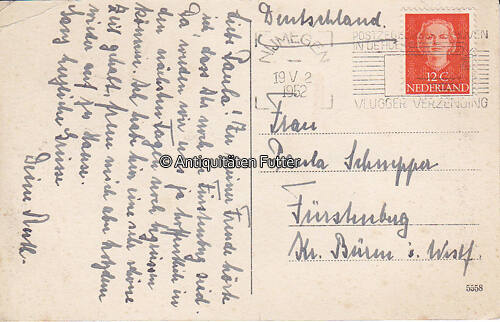 Deutschland.
NIJMEGEN
19 V 2
1952
POSTZEGEL
VLUGGER VERZENDING
12 C
NEDERLAND
Liebe Paula! Zu meiner Freude hörte
ich, dass du noch in Fürstenberg bist.
Da werden wir uns ja hoffentlich in
den nächsten Tagen noch
können. Ich hab hier eine sehr schöne
Zeit gehabt, freue mich aber trotzdem
wieder auf zu Hause.
herzliche Grüsse
Deine
© Antiquitäten Futter
Frau
Paula Schnepper
Fürstenberg
Kr. Büren i. Westf.
5558